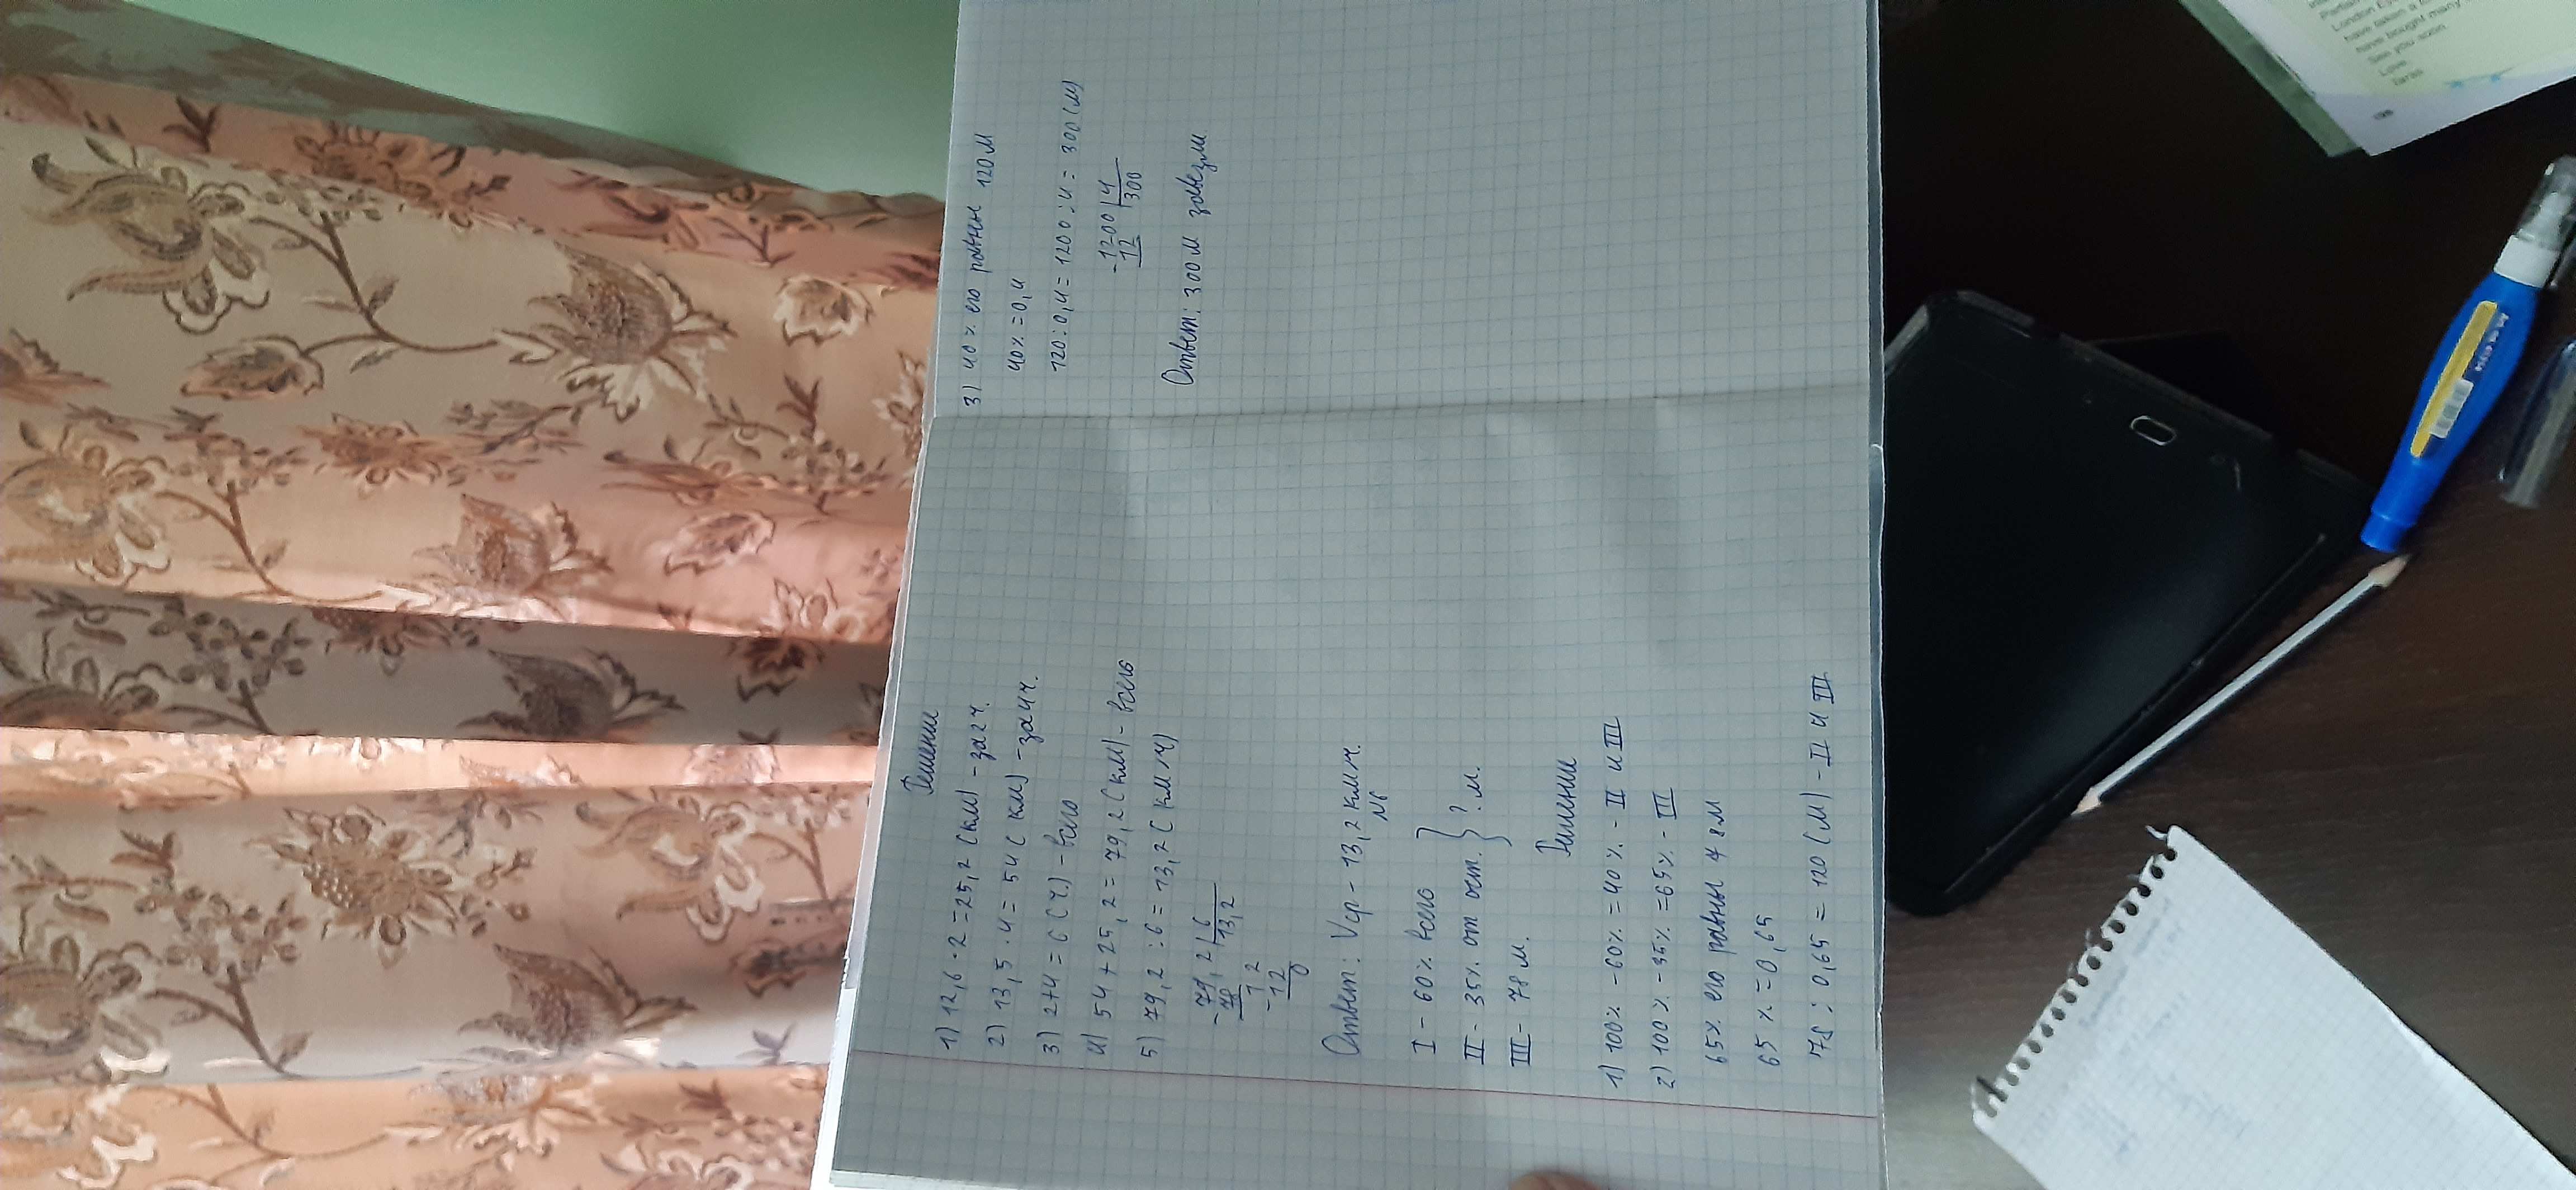 Решение
1) 12,6 · 2 = 25,2 (км) - за 2 ч.
2) 13,5 · 4 = 54 (км) - за 4 ч.
3) 2+4 = 6 (ч.) - всего
4) 54 + 25,2 = 79,2 (км) - всего
5) 79,2 : 6 = 13,2 (км/ч)
- 79,2 | 6
78 | 13,2
12
- 12
0
Ответ: Vср - 13,2 км/ч.
№6
I - 60% всего
II - 35% от ост. } ? м.
III - 78 м.
Решение
1) 100% - 60% = 40% - II и III
2) 100% - 35% = 65% - III
65% его равны 78м
65% = 0,65
78 : 0,65 = 120 (м) - II и III
3) 40% его равны 120м
40% = 0,4
120 : 0,4 = 1200 : 4 = 300 (м)
- 1200 | 4
12 | 300
Ответ: 300м завезли
London Eye
have taken a
have bought many
See you soon
Love